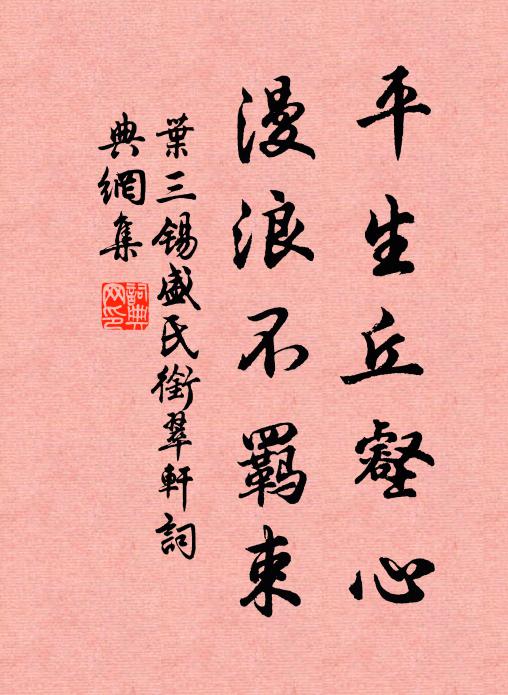 平生丘壑心
漫浪不羈束
葉三錫盛氏銜翠軒詞
典網集
詞典网印